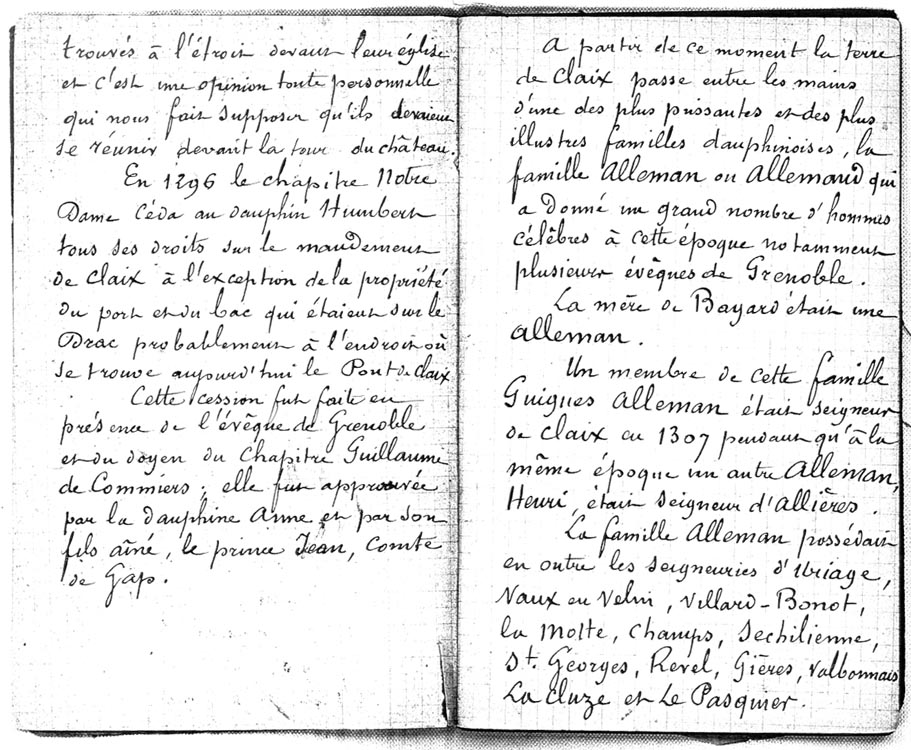 trouvés à l'étroit devant leur église
et c'est une opinion toute personnelle
qui nous fait supposer qu'ils devaient
se réunir devant la tour du château.
En 1296 le chapitre Notre
Dame céda au dauphin Humbert
tous ses droits sur le mandement
de Claix à l'exception de la propriété
du port et du bac qui étaient sur le
Drac probablement à l'endroit où
se trouve aujourd'hui le Pont de Claix
Cette cession fut faite en
présence de l'évêque de Grenoble
et du doyen du Chapitre Guillaume
de Commiers ; elle fut approuvée
par la dauphine Anne et par son
fils aîné, le prince Jean, Comte
de Gap.
A partir de ce moment la terre
de Claix passe entre les mains
d'une des plus puissantes et des plus
illustres familles dauphinoises, la
famille Alleman ou Allemand qui
a donné un grand nombre d'hommes
célèbres à cette époque notamment
plusieurs évêques de Grenoble.
La mère de Bayard était une
Alleman.
Un membre de cette famille
Guigues Alleman était seigneur
de Claix en 1307 pendant qu'à la
même époque un autre Alleman,
Henri, était seigneur d'Allières.
La famille Alleman possédait
en outre les seigneuries d'Uriage,
Vaux en Velin, Villard-Bonot,
la Motte, Champs, Sechilienne,
St. Georges, Revel, Gières, Valbonnais
La Cluze et Le Pasquier.